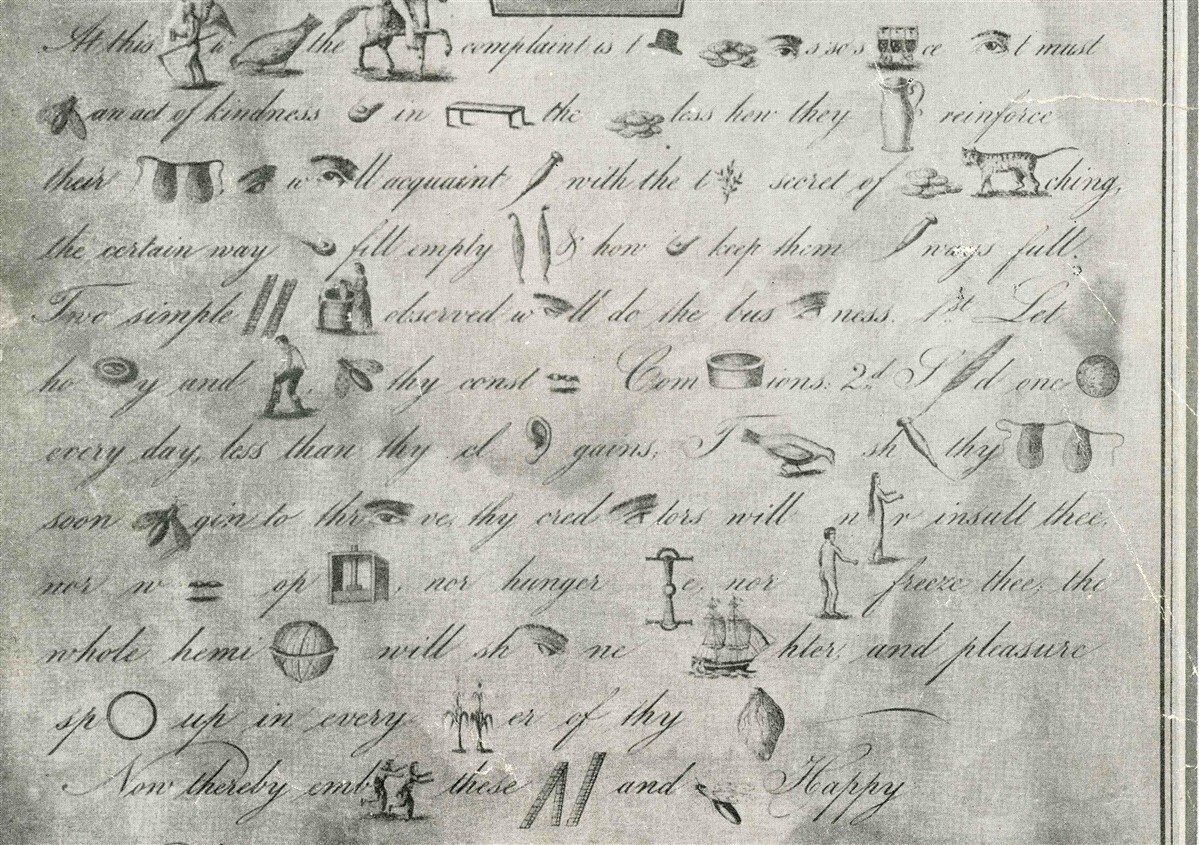 At this w the complaint is t s so s ce t must
an act of kindness in the less how they reinforce
their w ll acquaint with the t secret of ching,
the certain way fill empty & how keep them ways full.
Two simple observed w ll do the bus ness. 1st Let
ho y and thy const Com ions: 2d S d one
every day, less than thy cl gains; T sh thy
soon gin to thr ve, thy cred tors will n r insult thee,
nor w op , nor hunger e, nor freeze thee; the
whole hemi will sh ne hter, and pleasure
sp up in every er of thy
Now thereby emb these and Happy